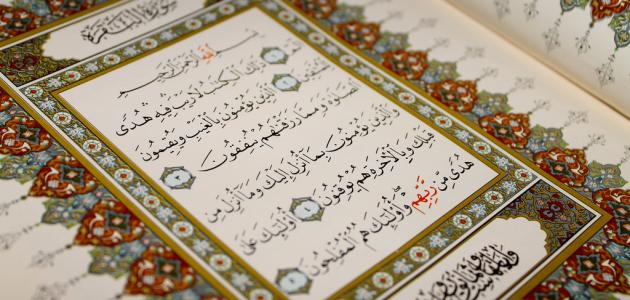 سُورَةُ الْبَقَرَةِ
بِسْمِ اللَّهِ الرَّحْمَٰنِ الرَّحِيمِ
الٓمٓ ١ ذَٰلِكَ الْكِتَٰبُ لَا رَيْبَ فِيهِ هُدًى
لِلْمُتَّقِينَ ٢ الَّذِينَ يُؤْمِنُونَ بِالْغَيْبِ وَيُقِيمُونَ
الصَّلَوٰةَ وَمِمَّا رَزَقْنَٰهُمْ يُنفِقُونَ ٣
وَالَّذِينَ يُؤْمِنُونَ بِمَا أُنزِلَ إِلَيْكَ وَمَا أُنزِلَ مِن
قَبْلِكَ وَبِالْآخِرَةِ هُمْ يُوقِنُونَ ٤ أُولَٰئِكَ عَلَىٰ
هُدًى مِّن رَّبِّهِمْ وَأُولَٰئِكَ هُمُ الْمُفْلِحُونَ ٥